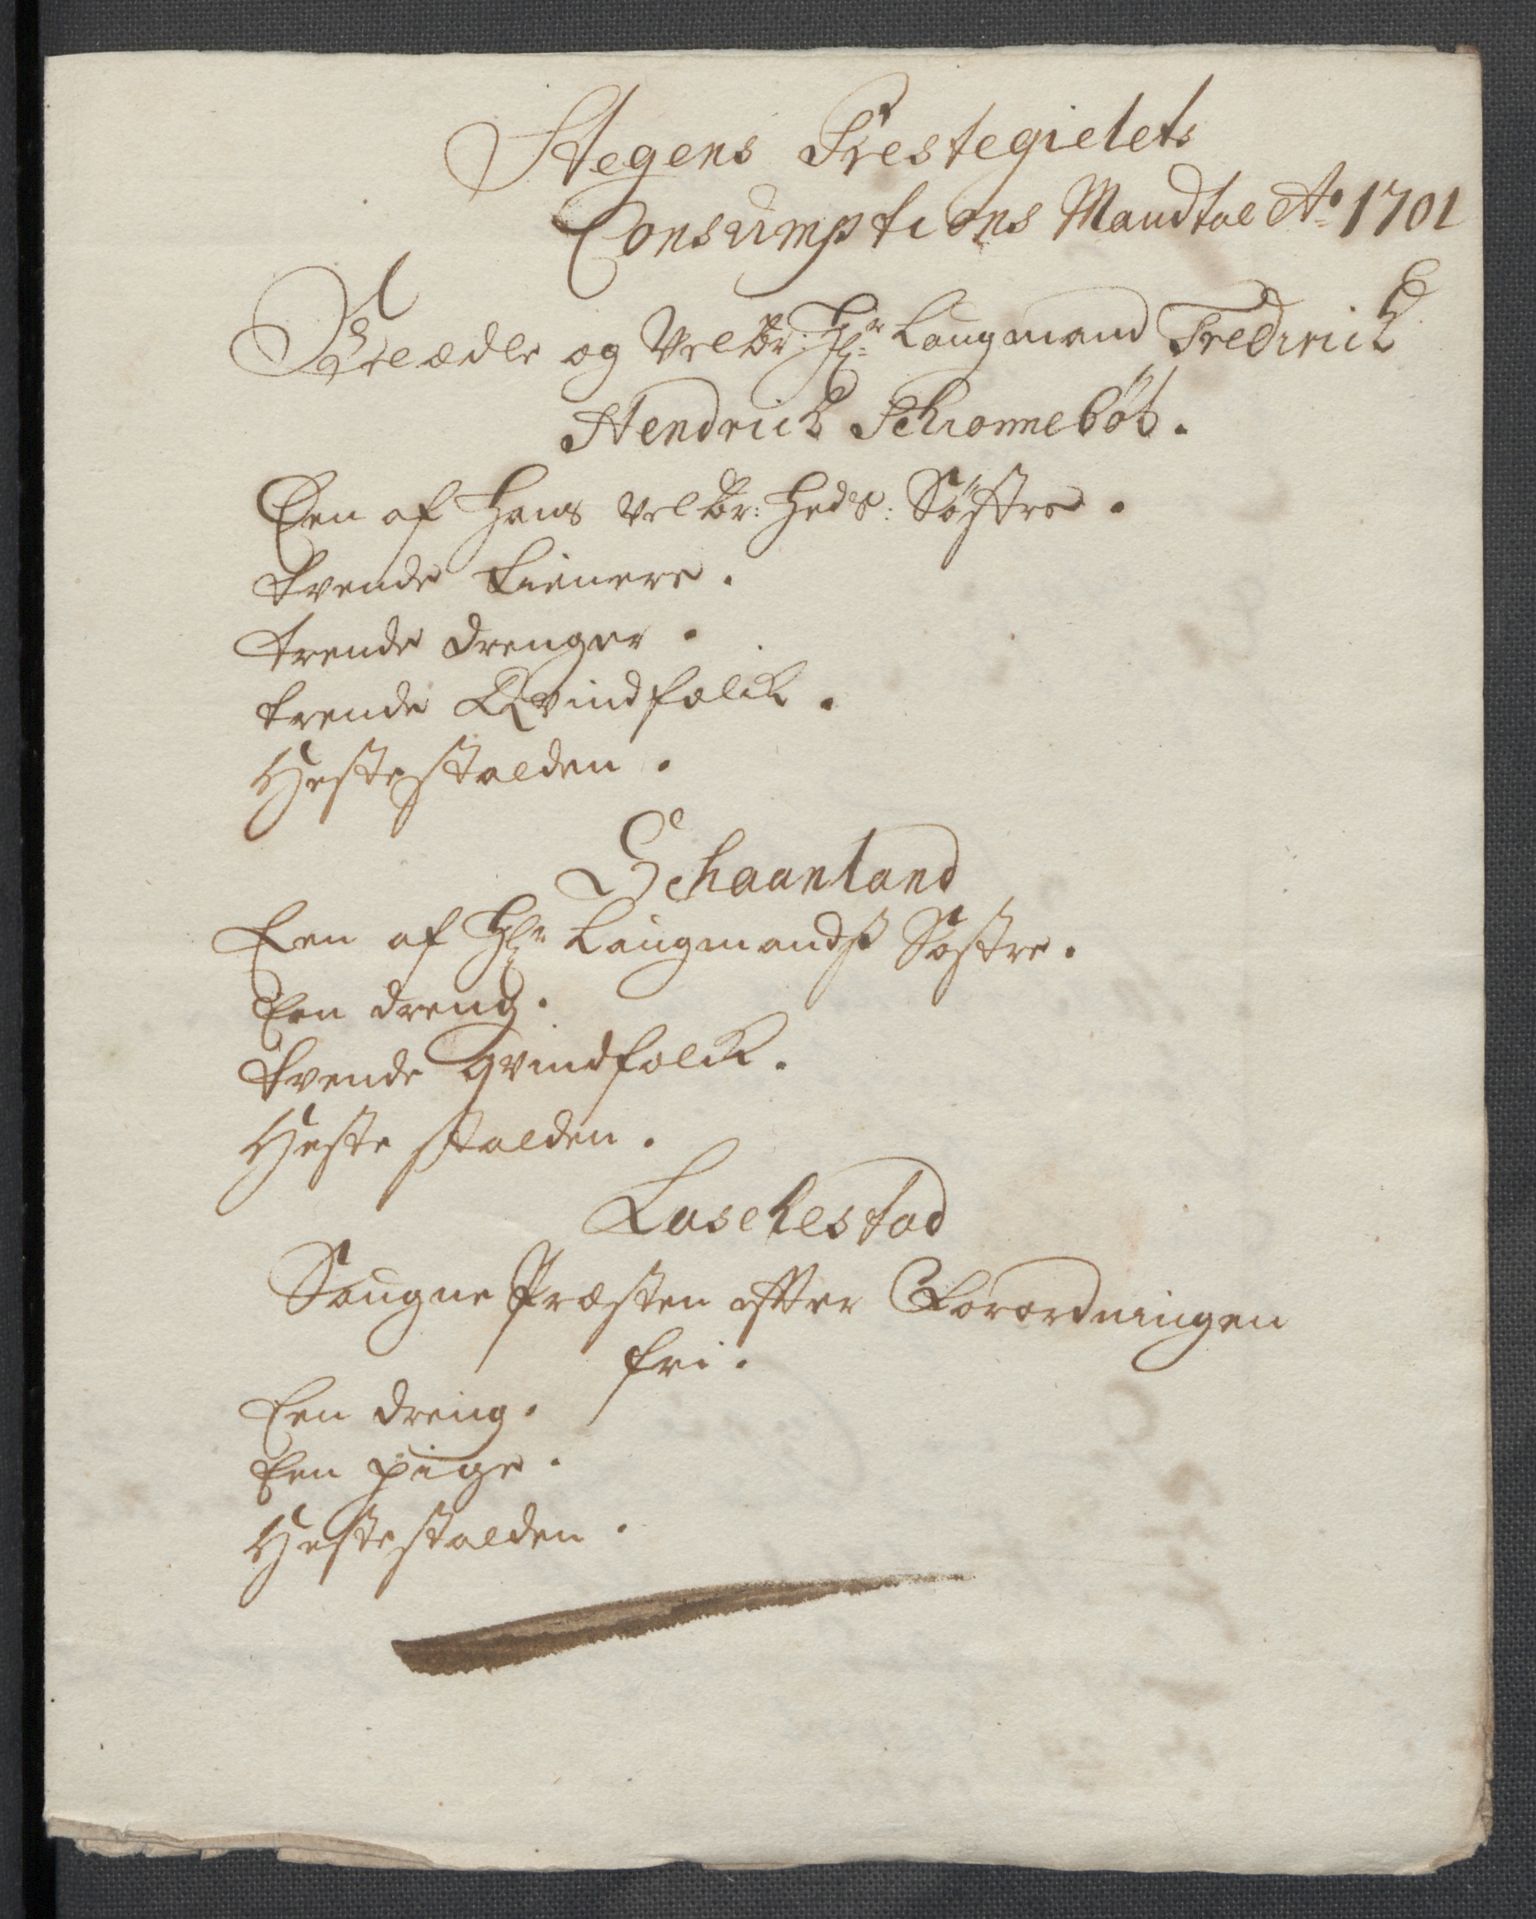 Stegens Prestegielets
Consumptions Mandtal Ao 1701
Velædle og Velbr: Hr Laugmand Fredrich
Hendrich Schionnebøl.
Een af Hans Velbr: Heds: Søstre.
tvende tienere.
trende drenger.
trende Qvindfolck.
Hestestalden.
Schaanland
Een af Hr Laugmandss Søstre.
Een dreng.
tvende qvindfolck.
Heste stalden.
Laschestad
Sougne Præsten efter Forordningen
fri.
Een dreng.
Een pige.
Hestestalden.